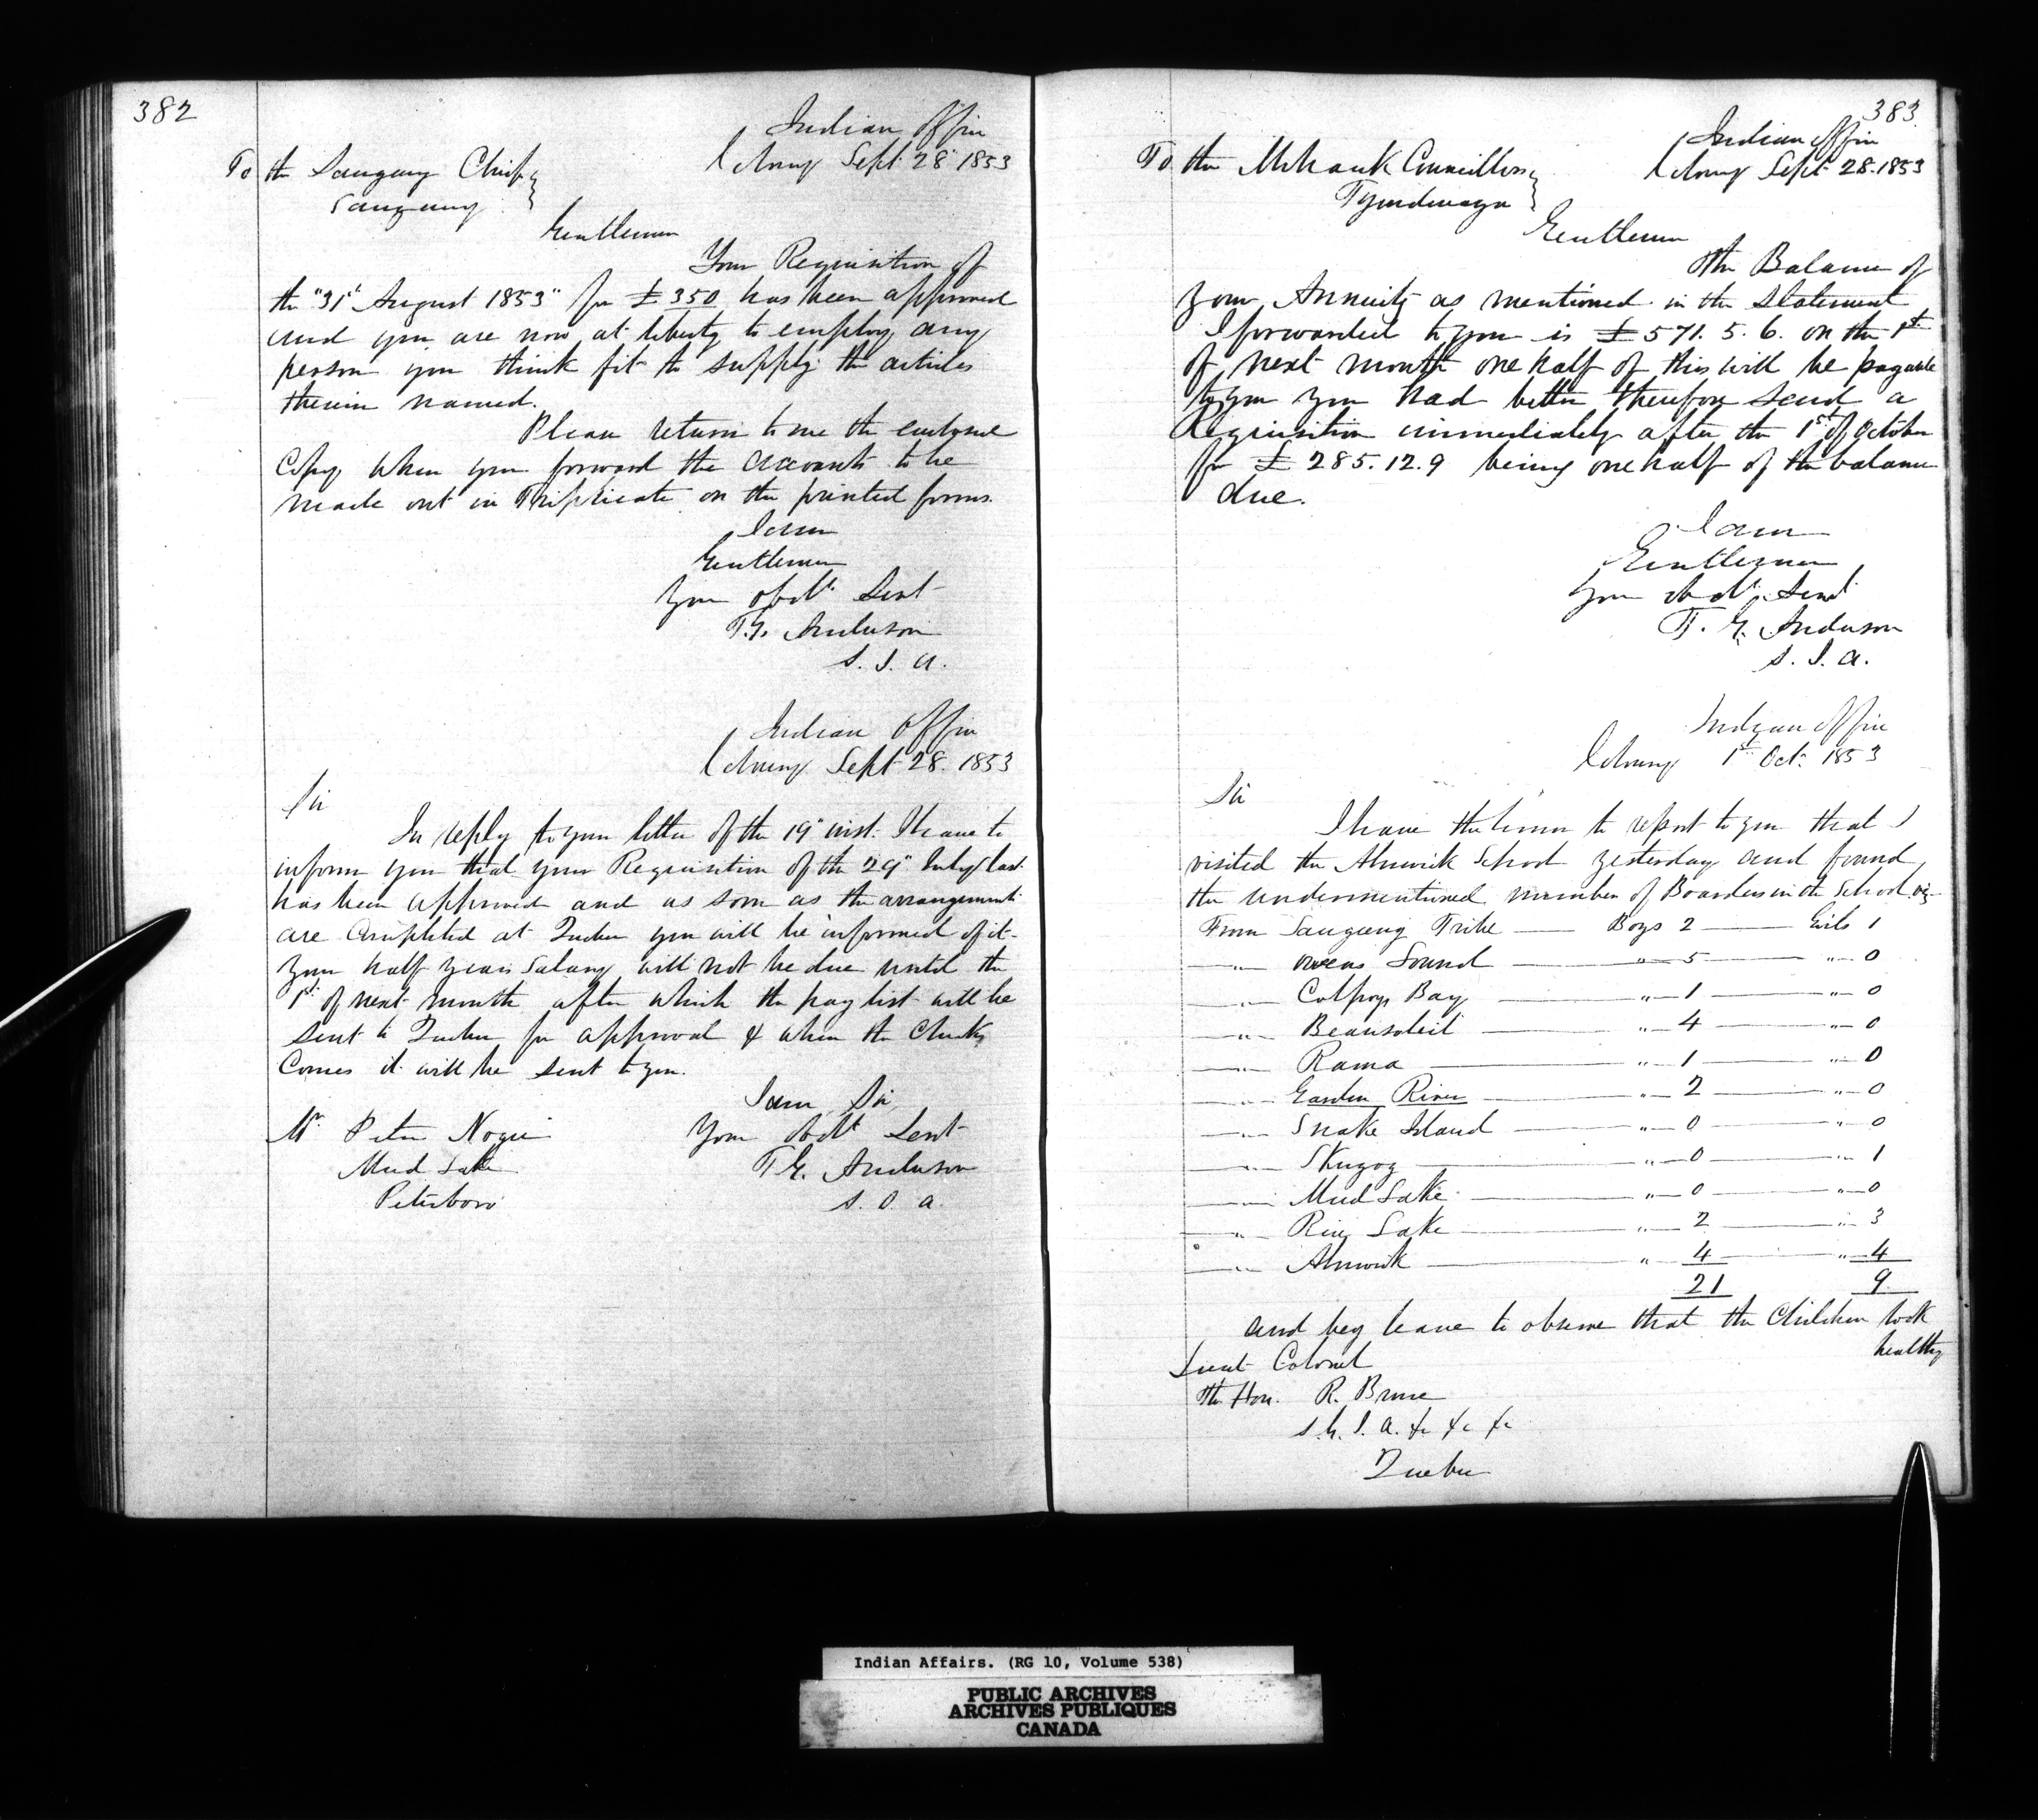 382
Indian Office
Cobourg Sept 28 1853
To the Saugeeng Chiefs
Saugeeng
Gentlemen
Your Requisition of
the "31st August 1853" for £350 has been approved
and you are now at liberty to employ any
person you think fit to supply the articles
therein named.
Please return to me the enclosed
Copy when you forward the accounts to be
made out in Triplicate on the printed forms.
I am
Gentlemen
Your obdt Servt
T.G. Anderson
S. I. A.
Indian Office
Cobourg Sept 28. 1853
Sir
In reply to your letter of the 19" inst. I have to
inform you that your Requisition of the 29" July last
has been approved and as soon as the arrangements
are completed at Quebec you will be informed of it.
Your half years Salary will not be due until the
1st of next month after which the pay list will be
sent to Quebec for approval & when the Checks
Comes it will be sent to you.
I am Sir
Your Obdt Servt
T G. Anderson
S. I. A.
Mr Peter Nogie
Mud Lake
Peterboro
383
Indian Office
Cobourg Sept 28. 1853
To the Mohawk Councillors
Tyendenaga
Gentlemen
The Balance of
your Annuity as mentioned in the Statement
I forwarded to you is £571. 5. 6. on the 1st
of next month one half of this will be payable
to you you had better therefore send a
Requisition immediately after the 1st of October
for £ 285. 12. 9 being one half of the balance
due.
I am
Gentlemen
Your Obdt Servt
T. G. Anderson
S. I. A.
Indian Office
Cobourg 1st Oct. 1853
Sir
I have the honor to report to you that I
visited the Alnwick School yesterday and found
the undermentioned number of Boarders in the School viz
From Saugeeng Tribe Boys 2 Girls 1
" Owens Sound " 5 " 0
" Colpoys Bay " 1 " 0
" Beausoleil " 4 " 0
" Rama " 1 " 0
" Garden River " 2 " 0
" Snake Island " 0 " 0
" Skugog " 0 " 1
" Mud Lake " 0 " 0
" Rice Lake " 2 " 3
" Alnwick " 4 " 4
21 9
and beg leave to observe that the Children look
healthy
Lieut Colonel
The Hon. R. Bruce
S. G. I. A. &c &c &c
Quebec
Indian Affairs. (RG 10, Volume 538)
PUBLIC ARCHIVES
ARCHIVES PUBLIQUES
CANADA